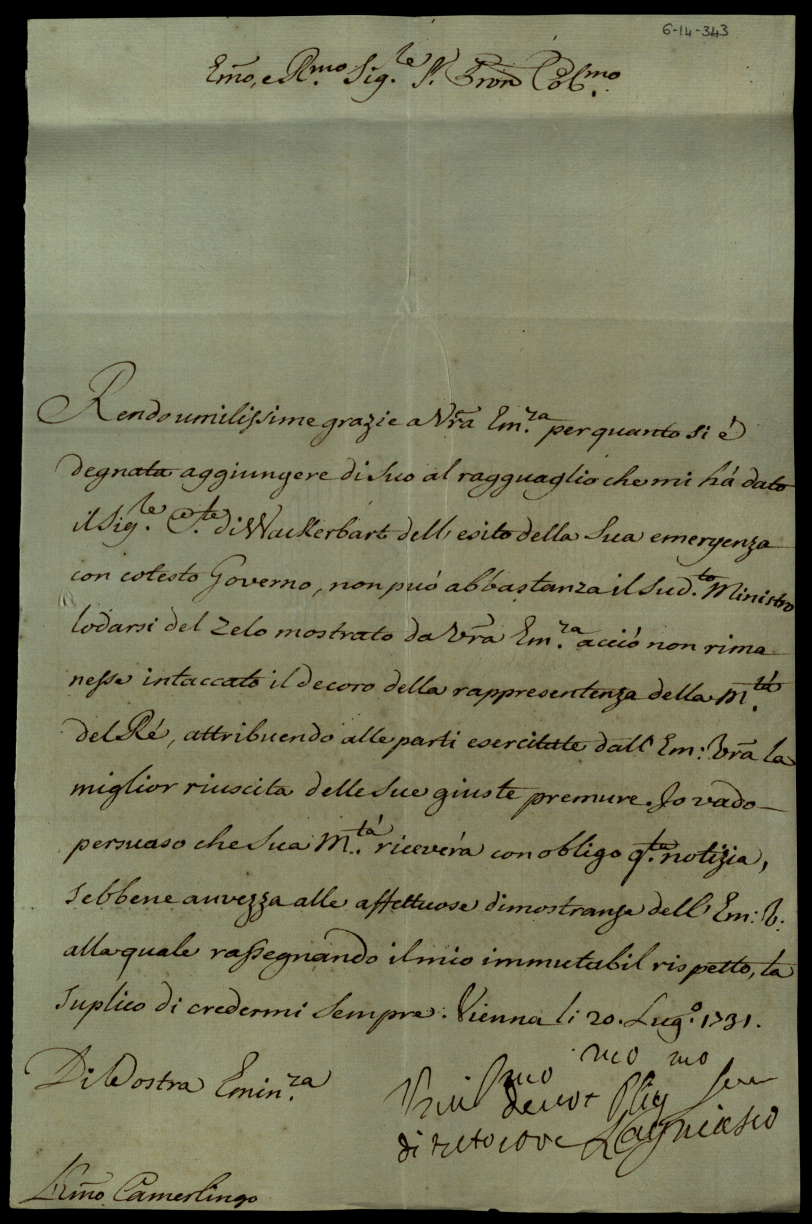 6-14-343
Emo, e Rmo Sig.re P. Pron Colmo.
Rendo umilissime grazie a Vrã Em.za per quanto si é
degnata aggiungere di suo al ragguaglio che mi há dato
il Sig.re C.te di Wackerbart dell' esito della Sua emergenza
con cotesto Governo, non puó abbastanza il Sud.to Ministro
lodarsi del zelo mostrato da Vrã Em.za acció non rima
nesse intaccato il decoro della rappresentenza della M.tá
del Ré, attribuendo alle parti esercitate dall' Em: Vrã la
miglior riuscita delle Sue giuste premure. Io vado
persuaso che Sua M.tá riceverá con obligo q.ta notizia,
sebbene auvezza alle affettuose dimostranze dell' Em: V:
alla quale rassegnando il mio immutabil rispetto, la
suplico di credermi sempre. Vienna li 20. Lug.o 1731.
Di Vostra Emin.za
mo mo mo
devot
Lagnasco
Emo Camerlingo